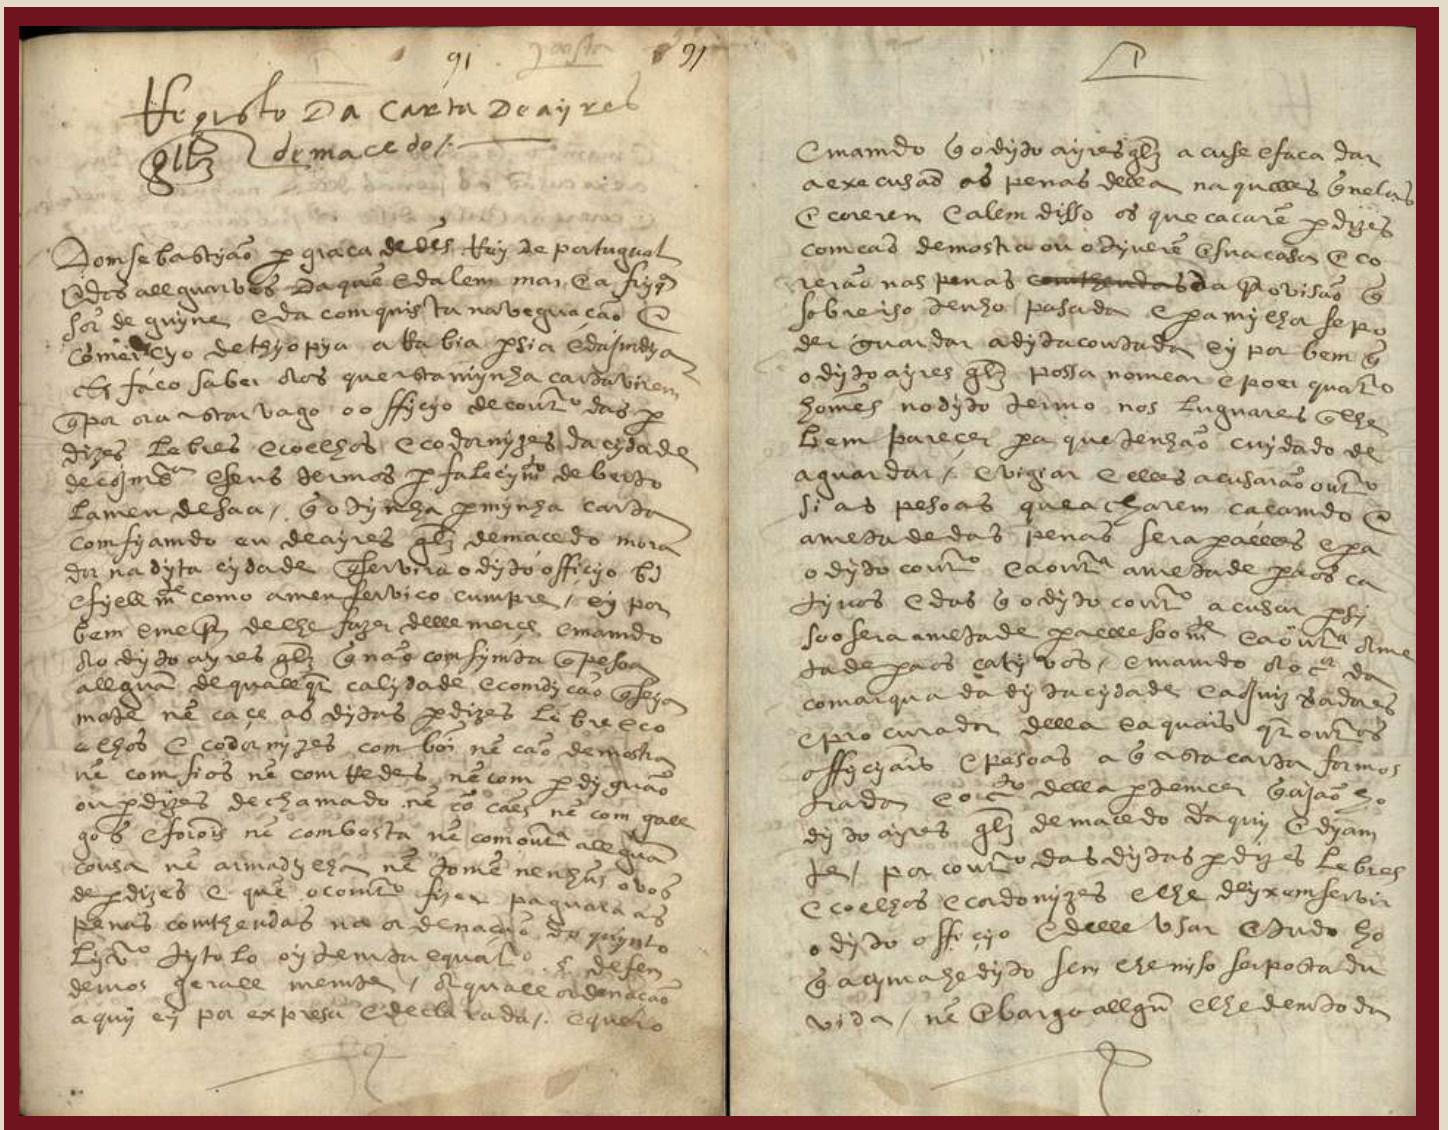 91 91
Registo Da Carta De ayres
glz de macedo /.
Dom sebastyão p graça de ds Rey de portugual
e dos allguarves Daquē e dalem mar e a friq
sor de guyne e da comquista naveguação e
comercyo dethyopya arabia psia e da Jndya
faço saber aos que esta mynha carta virem
q por ora estar vago o offycyo de cour.º das p
dizes lebres e coelhos e codornyzes da cydade
de coJmbra e seus termos p falecymto de berto
lameu de saa / q o tynha p mynha carta
comfyamdo eu de ayres glz de macedo mora
dor na dyta cydade q servira o dyto officyo bē
e fyellmte como a meu serviço cumpre / ey por
bem e me praz de lhe fazer delle merçe e mamdo
ao dyto ayres glz q não comsymta q pesoa
allguā de quallqr calydade e comdyção q seya
mate nē caçe as dytas pdizes lebre e co
elhos e codornyzes com boi nē cão de mostra
nē com fios nē com Redes nē com pdyguão
ou pdizes de chamado nē cō cães nē com gall
gos e foroīs nē com bosta nē com outra allguā
cousa nē armadylha nē tomē nenhūs ovos
de pdizes e quē o comtro fizer paguara as
penas comtheudas na ordenação do quynto
lyvro tytolo oytemta e quatro defen
demos gerallmemte / a quall ordenação
aquy ey por expresa e declarada /. e quero
e mamdo q o dyto ayres glz acuse e faça dar
a execusaō as penas della naquelles q nelas
e corerem e alem disso os que caçarē pdizes
com cās de mostra ou o tyverē e sua casa e co
rerão nas penas comtheudas da provisão q
sobre iso tenho pasada e pa mylhor se po
der guardar a dyta coutada ey por bem q
o dyto ayres glz possa nomear e poer quatro
homēs no dyto termo nos luguares q lhe
bem parecer pa que tenhão cuydado de
aguardar / e vigiar e elles acusarão outro
si as pesoas que acharem caçamdo e
ametade das penas sera pa elles e pa
o dyto cour.º e a outra ametade pa os ca
tyvos e das q o dyto cour.º acusar p si
soo sera ametade pa elle soomte e a outra ame
tade pa os catyvos / e mamdo ao cor da
comarqua da dyta cydade e ao Juiz vradores
e procurador della e a quaisqr outros
offycyais e pesoas a q esta carta for mos
trada e o cto della pertemcer q ajão ho
dyto ayres glz de macedo daquy e dyam
te / por cour.º das dytas pdizes lebres
e coelhos e cordonyzes e lhe deyxem servir
o dyto officyo e delle usar e tudo ho
q acyma he dyto sem lhe niso ser posta du
vida / nē e bargo allgū e lhe dem toda